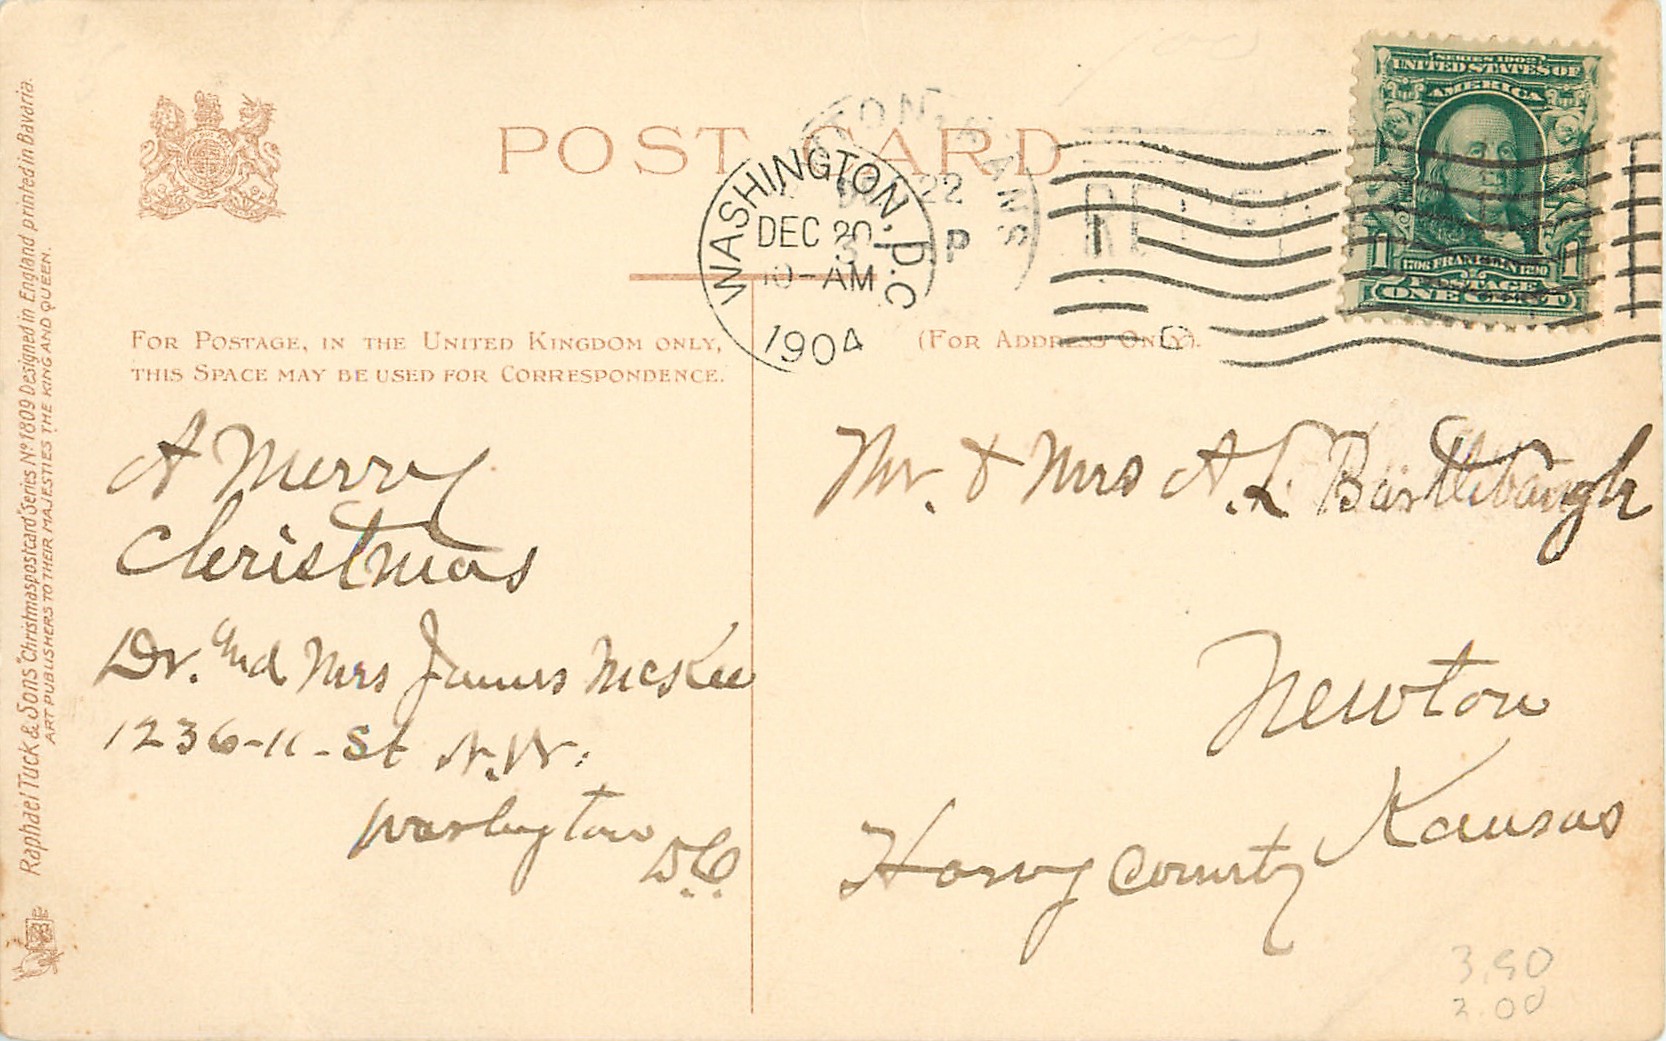 Raphael Tuck & Sons' "Christmas postcard" Series Nº 1809 Designed in England printed in Bavaria.
ART PUBLISHERS TO THEIR MAJESTIES THE KING AND QUEEN.
POST CARD
FOR POSTAGE, IN THE UNITED KINGDOM ONLY,
THIS SPACE MAY BE USED FOR CORRESPONDENCE.
(FOR ADDRESS ONLY).
WASHINGTON, D.C
DEC 20
10-AM
1904
22
P
KANS
SERIES 1902
UNITED STATES OF
AMERICA
1706 FRANKLIN 1790
1 1
POSTAGE
ONE CENT
A Merry
Christmas
Dr. and Mrs James McKee
1236-11-St N.W.
Washington
D.C.
Mr. & Mrs A.L. Bartlebaugh
Newton
Kansas
Harvy County
3.50
2.00